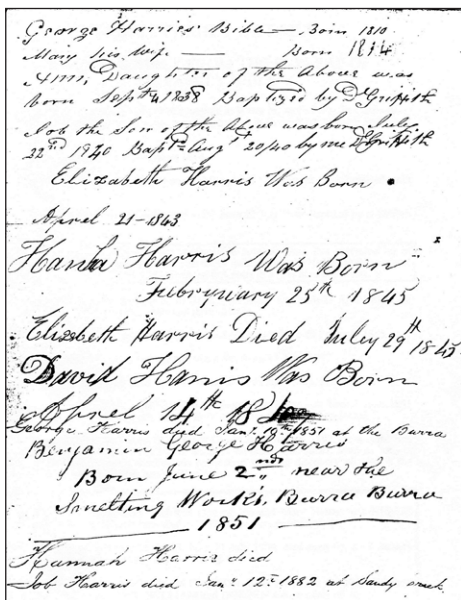 George Harries Bible — Born 1810
Mary his Wife — Born 1814
Ann, Daughter of the Above was
born Sept 4 1838 Baptized by D Griffith
Job the Son of the Above was born July
22nd 1940 Bapt Augt 20/40 by me D Griffith
Elizabeth Harris Was Born
April 21-1843
Hanha Harris Was Born
Februyuary 25th 1845
Elizebeth Harris Died July 29th 1845
David Harris Was Born
Aprel 14th 18
George Harris died Jany 19th 1851 at the Burra
Benjamin George Harris
Born June 2nd near the
Smelting Work's, Burra Burra
1851
Hannah Harris died
Job Harris died Jany 12th 1882 at Sandy creek